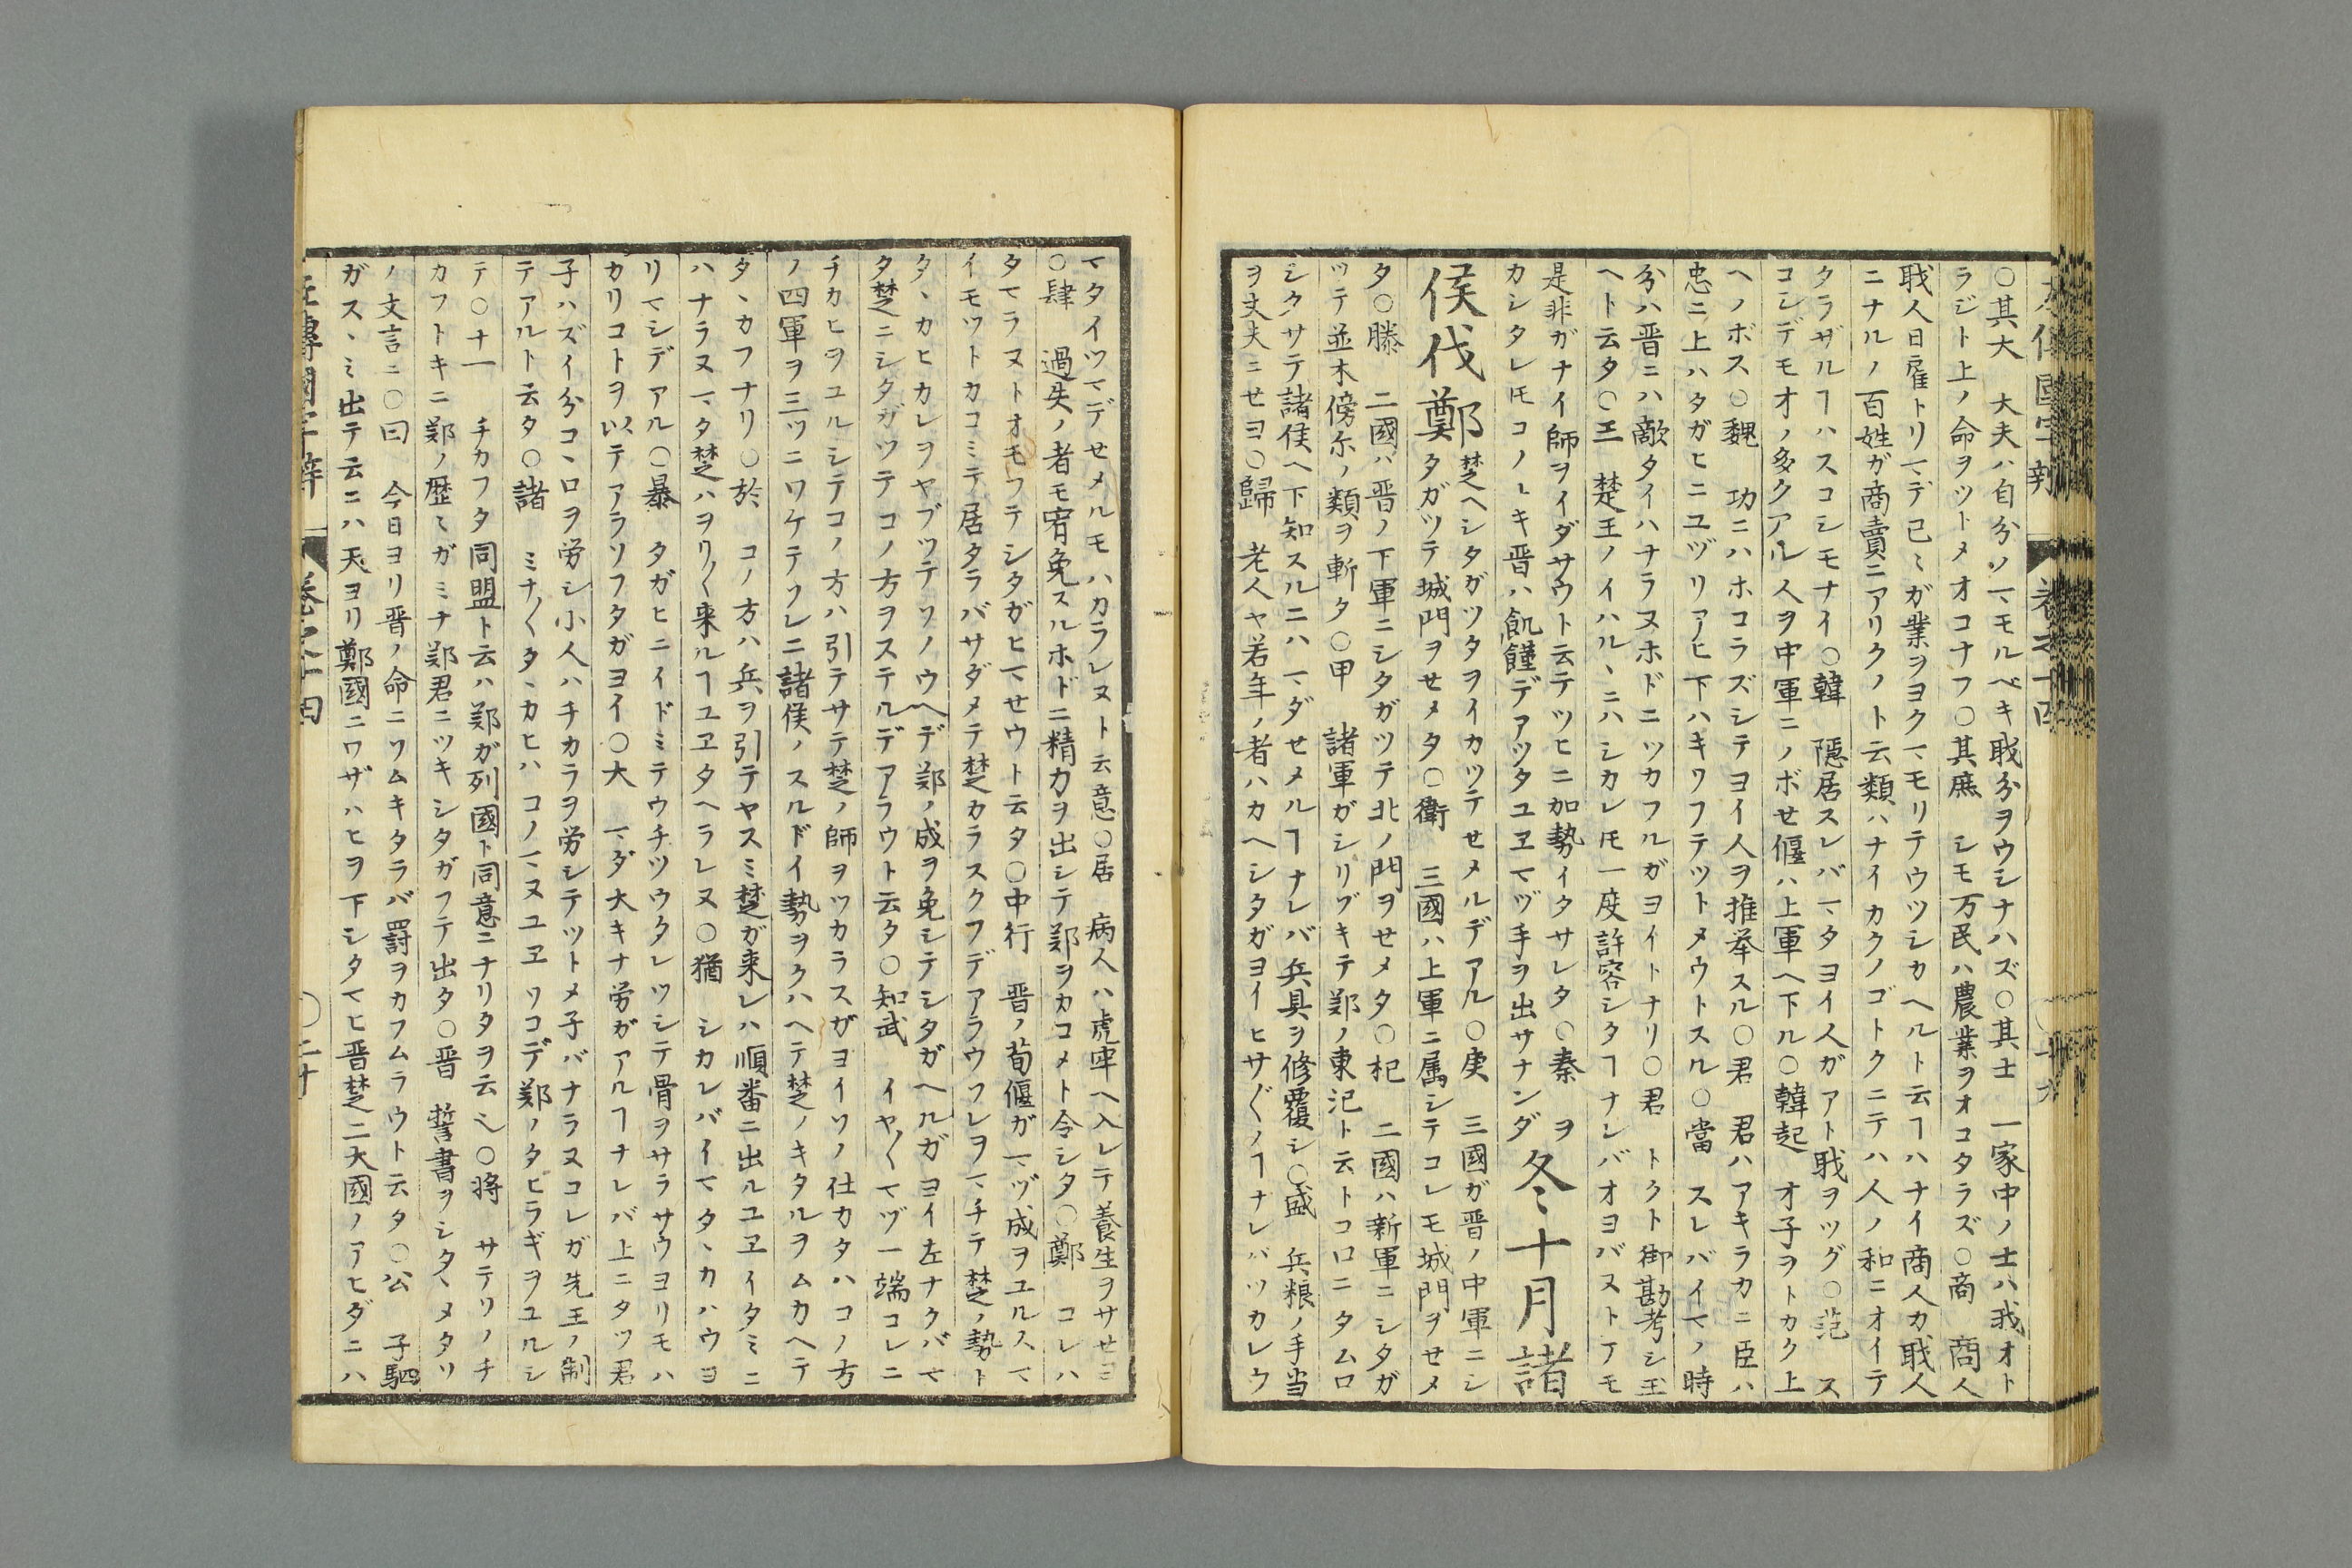 左傳國字辯 卷之十四
○其大 大夫ハ自分ノマモルベキ職分ヲウシナハズ○其士 一家中ノ士ハ我オト
ラジト上ノ命ヲツトメオコナフ○其庶 シモ万民ハ農業ヲオコタラズ○商 商人
職人日雇トリマデ己〻ガ業ヲヨクマモリテウツシカヘルト云ヿハナイ商人カ職人
ニナルノ百姓ガ商賣ニアリクノト云類ハナイカクノゴトクニテハ人ノ和ニオイテ
タラザルヿハスコシモナイ○韓 隱居スレバマタヨイ人ガアト職ヲツグ○范 ス
コシデモオノ多クアル人ヲ中軍ニノボセ偃ハ上軍ヘ下ル○韓起 オ子ヲトカク上
ヘノボス○魏 功ニハホコラズシテヨイ人ヲ推挙スル○君 君ハアキラカニ臣ハ
忠ニ上ハタガヒニユヅリアヒ下ハキワフテツトメウトスル○當 スレバイマノ時
分ハ晋ニハ敵タイハナラヌホドニツカフルガヨイトナリ○君 トクト御勘考シ玉
ヘト云タ○王 楚王ノイハルヽニハシカレ𪜈一度許容シタヿナレバオヨバヌトアモ
是非ガナイ師ヲイダサウト云テツヒニ加勢イタサレタ○秦 ヲ
カシタレ𪜈コノヽキ晋ハ飢饉デアツタユヱマヅ手ヲ出サナンダ冬十月諸
侯伐鄭楚ヘシタガツタヲイカツテセメルデアル○庚 三國ガ晋ノ中軍ニシ
タガツテ城門ヲセメタ○衛 三國ハ上軍ニ属シテコレモ城門ヲセメ
タ○滕 二國ハ晋ノ下軍ニシタガツテ北ノ門ヲセメタ○杞 二國ハ新軍ニシタガ
ツテ並木傍尓ノ類ヲ斬タ○甲 諸軍ガシリゾキテ鄭ノ東汜ト云トコロニタムロ
シクサテ諸侯ヘ下知スルニハマダセメルヿナレバ兵具ヲ修覆シ○盛 兵粮ノ手当
ヲ丈夫ニセヨ○歸 老人ヤ若年ノ者ハカヘシタガヨイヒサ〴〵ノヿナレバツカレウ
マタイツマデセメルモハカラレヌト云意○居 病人ハ虎牢ヘ入レテ養生ヲサセヨ
○肆 過失ノ者モ宥免スルホドニ精力ヲ出シテ鄭ヲカコメト令シタ○鄭 コレハ
タマラヌトオモフテシタガヒマセウト云タ○中行 晋ノ荀偃ガマヅ成ヲユルスマ
イモツトカコミテ居タラバサダメテ楚カラスクフデアラウソレヲマチテ楚ノ勢ト
タヽカヒカレヲヤブツテソノウヘデ鄭ノ成ヲ免シテシタガヘルガヨイ左ナクバマ
タ楚ニシタガツテコノ方ヲステルデアラウト云タ○知武 イヤ〳〵マヅ一端コレニ
チカヒヲユルシテコノ方ハ引テサテ楚ノ師ヲツカラスガヨイソノ仕カタハコノ方
ノ四軍ヲ三ツニワケテソレニ諸侯ノスルドイ勢ヲクハヘテ楚ノキタルヲムカヘテ
タヽカフナリ○於 コノ方ハ兵ヲ引テヤスミ楚ガ来レハ順番ニ出ルユヱイタミニ
ハナラヌマタ楚ハヲリ〳〵来ルヿユヱタヘラレヌ○猶 シカレバイマタヽカハウヨ
リマシデアル○暴 タガヒニイドミテウチツウタレツシテ骨ヲサラサウヨリモハ
カリコトヲ以テアラソフタガヨイ○大 マダ大キナ労ガアルヿナレバ上ニタツ君
子ハズイ分コヽロヲ労シ小人ハチカラヲ労シテツトメ子バナラヌコレガ先王ノ制
テアルト云タ○諸 ミナ〳〵タヽカヒハコノマヌユヱソコデ鄭ノタヒラギヲユルシ
テ○十一 チカフタ同盟ト云ハ鄭ガ列國ト同意ニナリタヲ云也○将 サテソノチ
カフトキニ鄭ノ歴〻ガミナ鄭君ニツキシタガフテ出タ○晋 誓書ヲシタヽメタリ
ノ文言ニ○曰 今日ヨリ晋ノ命ニソムキタラバ罰ヲカフムラウト云タ○公 子駟
ガスヽミ出テ云ニハ天ヨリ鄭國ニワザハヒヲ下シタマヒ晋楚二大國ノアヒダニハ
左傳國字辯 卷之十四 ○二十